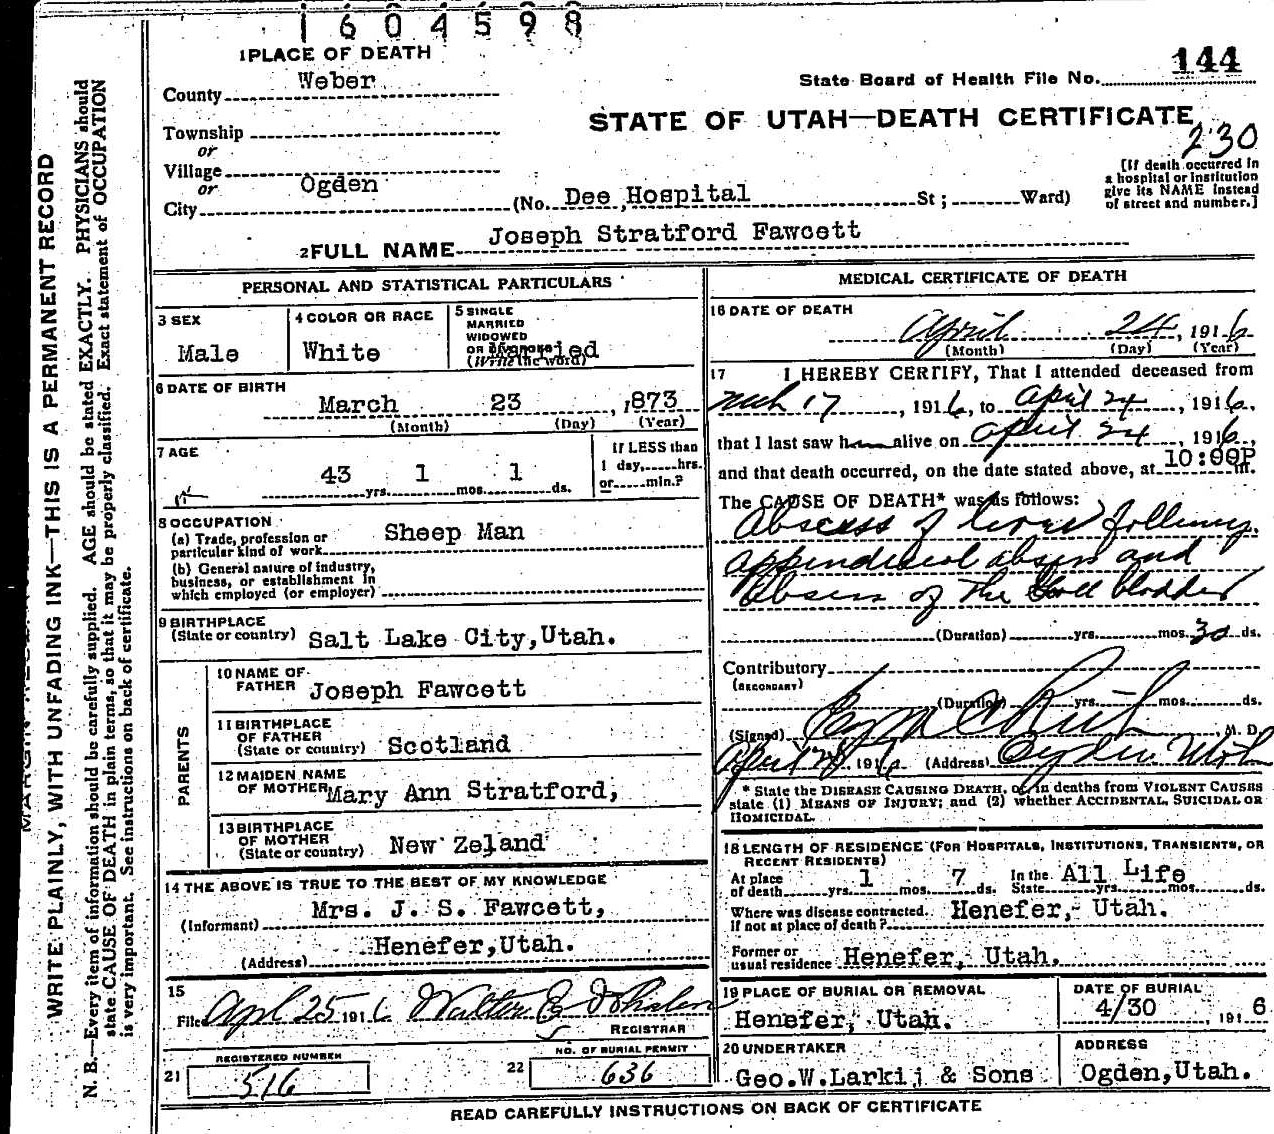 1604598
1 PLACE OF DEATH
County Weber
Township
or
Village
or
City Ogden
144
State Board of Health File No.
STATE OF UTAH—DEATH CERTIFICATE
230
[If death occurred in
a hospital or institution
give its NAME instead
of street and number.]
(No. Dee Hospital St; Ward)
2 FULL NAME Joseph Stratford Fawcett
PERSONAL AND STATISTICAL PARTICULARS
3 SEX
Male
4 COLOR OR RACE
White
5 SINGLE
MARRIED
WIDOWED
OR DIVORCED
(Write the word)
Married
6 DATE OF BIRTH
March 23, 1873
(Month) (Day) (Year)
7 AGE
43 yrs. 1 mos. 1 ds.
If LESS than
1 day, hrs.
or min.?
8 OCCUPATION
(a) Trade, profession or
particular kind of work Sheep Man
(b) General nature of industry,
business, or establishment in
which employed (or employer)
9 BIRTHPLACE
(State or country) Salt Lake City, Utah.
PARENTS
10 NAME OF
FATHER Joseph Fawcett
11 BIRTHPLACE
OF FATHER
(State or country) Scotland
12 MAIDEN NAME
OF MOTHER Mary Ann Stratford,
13 BIRTHPLACE
OF MOTHER
(State or country) New Zeland
14 THE ABOVE IS TRUE TO THE BEST OF MY KNOWLEDGE
(Informant) Mrs. J. S. Fawcett,
(Address) Henefer, Utah.
15
Filed Apl 25 1916 Walter E
REGISTRAR
REGISTERED NUMBER
21 516
NO. OF BURIAL PERMIT
22 636
MEDICAL CERTIFICATE OF DEATH
16 DATE OF DEATH
April 24, 1916
(Month) (Day) (Year)
17 I HEREBY CERTIFY, That I attended deceased from
Mch 17, 1916, to April 24, 1916,
that I last saw him alive on April 24, 1916,
and that death occurred, on the date stated above, at 10:00P m.
The CAUSE OF DEATH* was as follows:
Abscess of liver following
appendiceal abscess and
Abscess of the Gall bladder
(Duration) yrs. mos. 30 ds.
Contributory
(SECONDARY)
(Duration) yrs. mos. ds.
(Signed) Ezra C Rich, M. D.
April 25, 1916 (Address) Ogden Utah
* State the DISEASE CAUSING DEATH, or in deaths from VIOLENT CAUSES
state (1) MEANS OF INJURY; and (2) whether ACCIDENTAL, SUICIDAL OR
HOMICIDAL.
18 LENGTH OF RESIDENCE (FOR HOSPITALS, INSTITUTIONS, TRANSIENTS, OR
RECENT RESIDENTS)
At place
of death yrs. 1 mos. 7 ds.
In the
State All Life yrs. mos. ds.
Where was disease contracted,
If not at place of death? Henefer, Utah.
Former or
usual residence Henefer, Utah.
19 PLACE OF BURIAL OR REMOVAL
Henefer, Utah.
DATE OF BURIAL
4/30, 1916
20 UNDERTAKER
Geo.W.Larkij & Sons
ADDRESS
Ogden, Utah.
READ CAREFULLY INSTRUCTIONS ON BACK OF CERTIFICATE
WRITE PLAINLY, WITH UNFADING INK—THIS IS A PERMANENT RECORD
N. B.—Every item of information should be carefully supplied. AGE should be stated EXACTLY. PHYSICIANS should
state CAUSE OF DEATH in plain terms, so that it may be properly classified. Exact statement of OCCUPATION
is very important. See instructions on back of certificate.